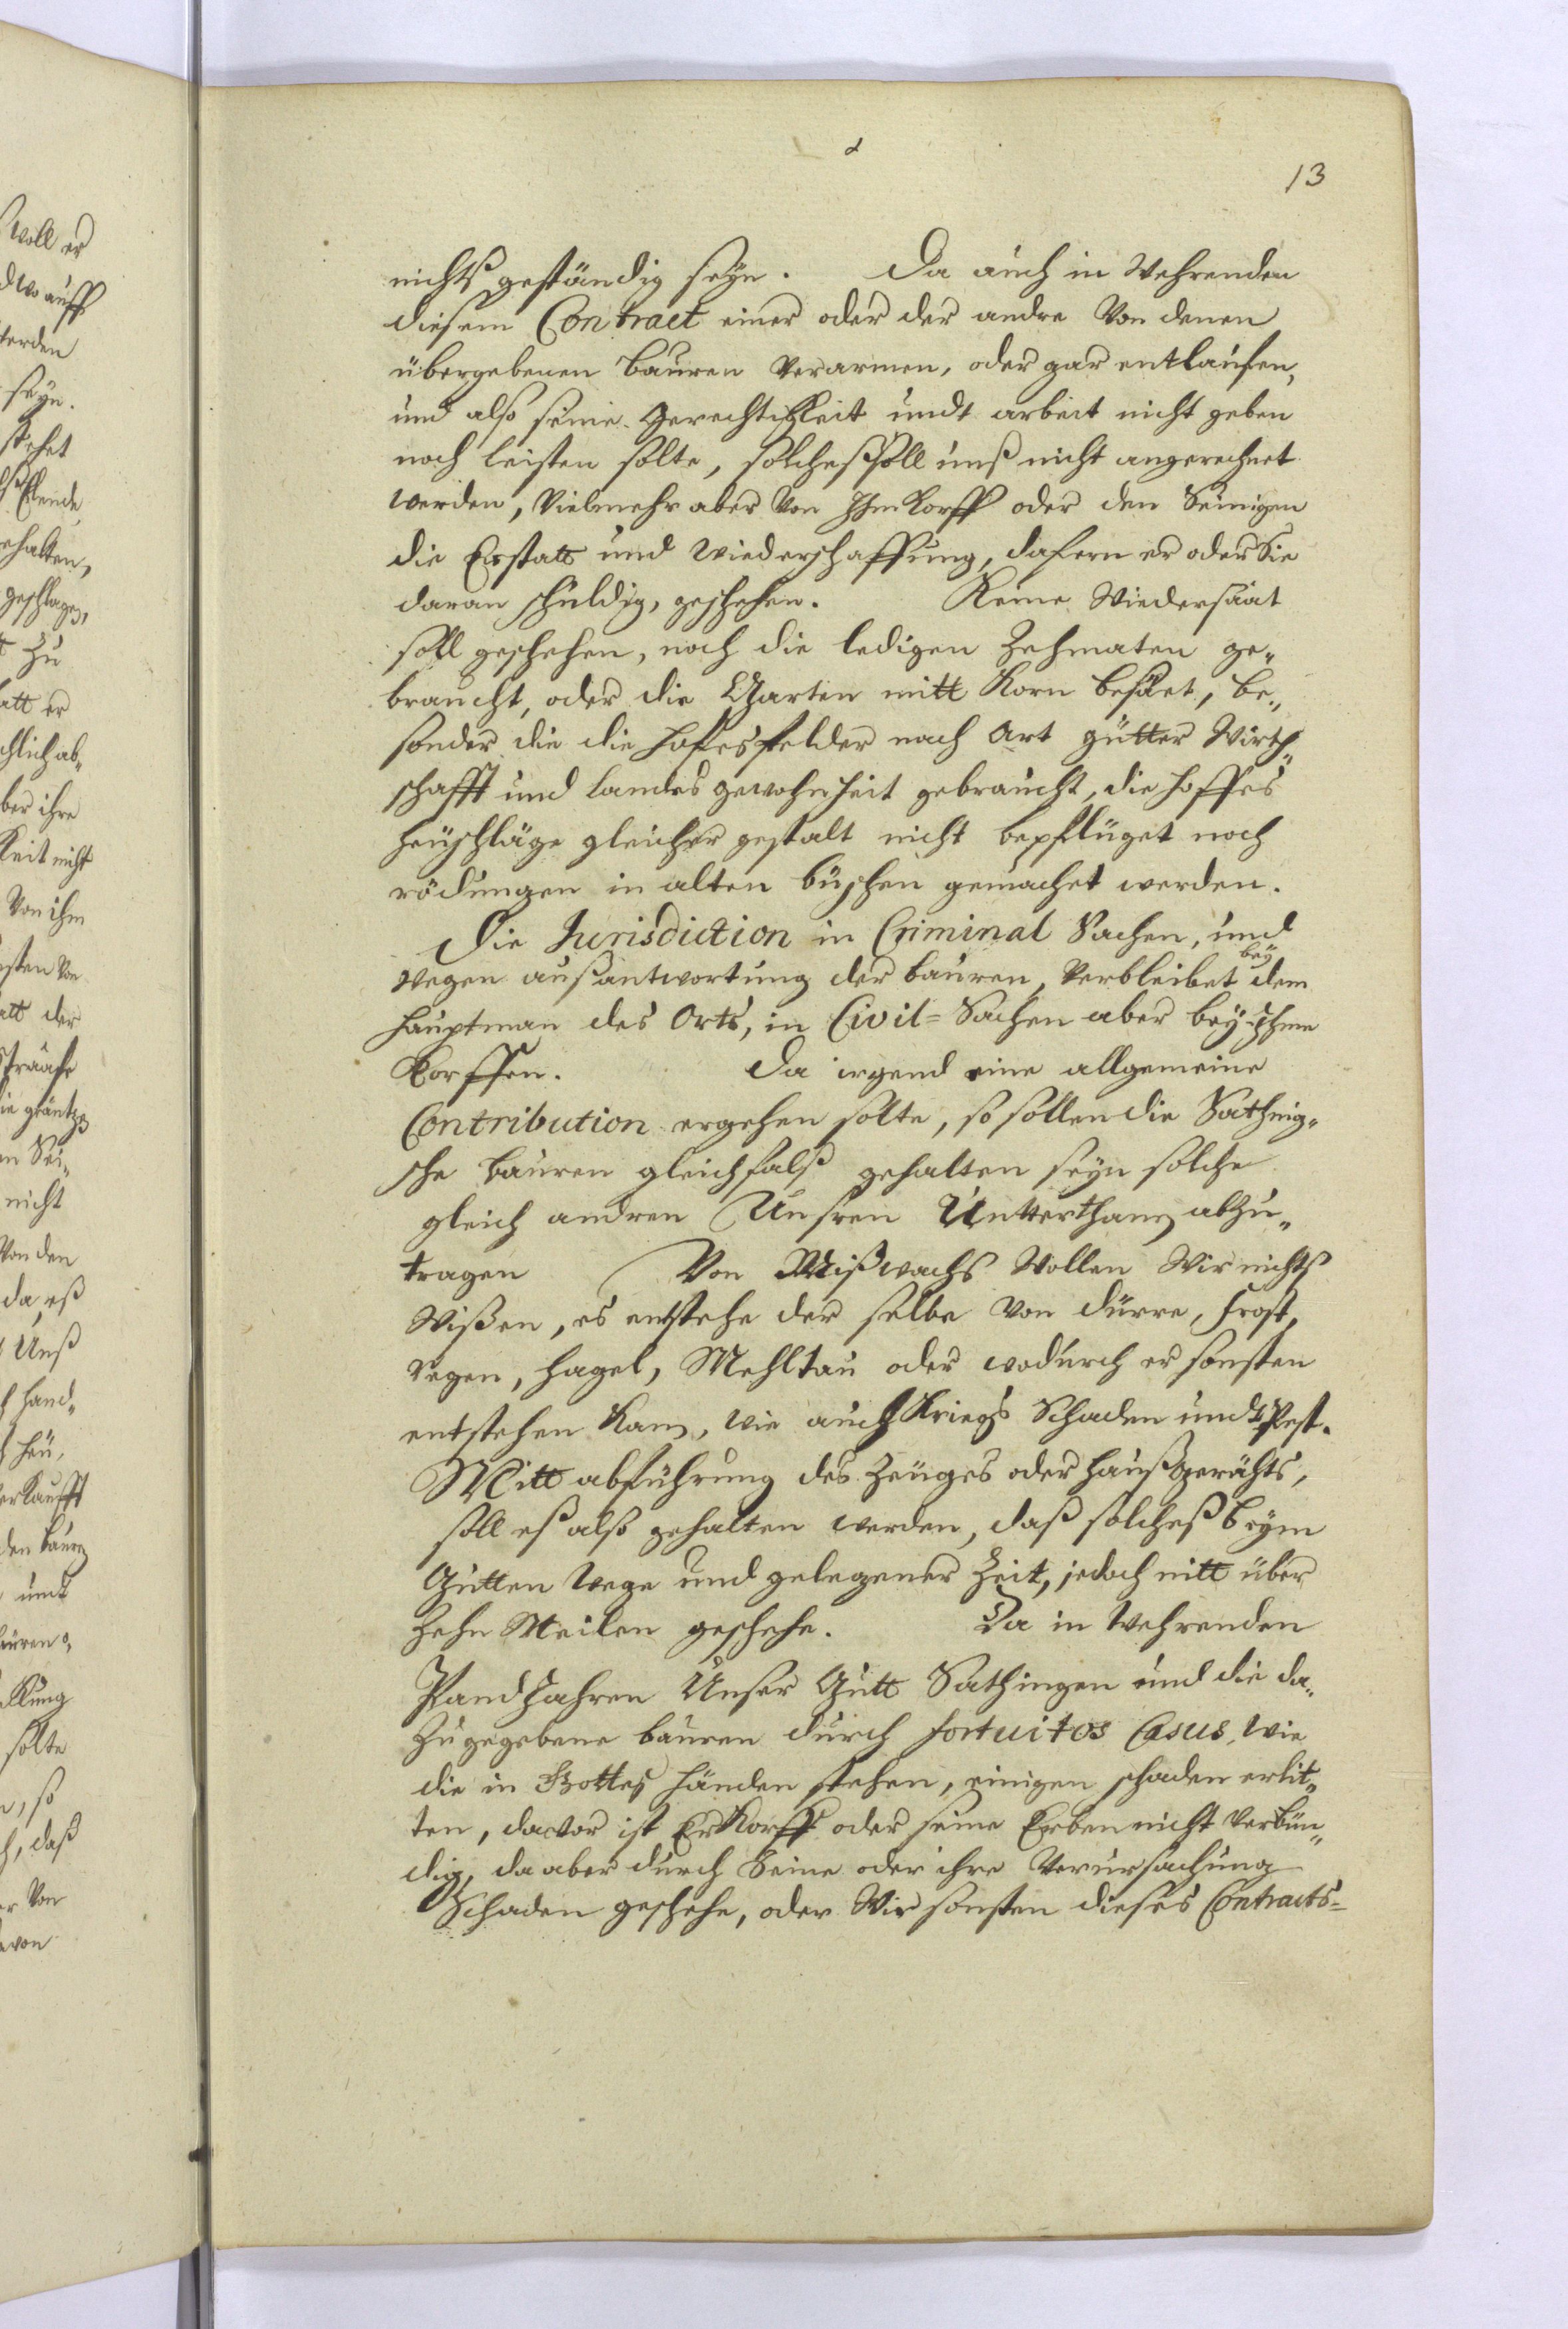 13
nichtß geständig seyn. Da auch in Wehrenden
diesem Contract einer oder der andre Von denen
übergebenen bauren verarmen, oder gar entlaufen,
und also seine gerechtigkeit undt arbeit nicht geben
noch leisten solte, solcheß soll unß nicht angerechnet
werden, Vielmehr aber Von Ihm Korff oder den Seinigen
die Erstatt und wiederschaffung, dafern er oder Sie
daran schuldig, geschehen. Keine Wiedersaat
soll geschehen, noch die ledigen Zehmaten ge„
braucht, oder die Garten mitt Korn besäet, be„
sonder die die hofesfelder nach Art gutter Wirth„
schafft und landes gewohnheit gebraucht, die hoffes
heuschläge gleicher gestalt nicht bepflüget noch
rödungen in alten büschen gemachet werden.
Die Jurisdiction in Criminal Sachen, und
wegen außantwortung der bauren, verbleibet bey dem
hauptman des Orts, in Civil= Sachen aber bey ihme
Korffen. Da irgend eine allgemeine
Contribution ergehen solte, so sollen die Sathing„
sche bauren gleichfalß gehalten seyn solche
gleich andren Unsren Untterthanen abzu„
tragen Von Mißwachs Wollen Wir nichts
Wißen, es entstehe der selbe von dürre, frost,
regen, hagel, Mehltau oder wodurch er sonsten
entstehen kann, wie auch Kriegs Schaden undt Pest.
Mitt abführung des Zeuges oder haußgerähts,
soll eß alß gehalten werden, daß solcheß beym
Gutten Wege und gelegener Zeit, jedoch nitt über
Zehn Meilen geschehe. Da in Wehrenden
Pandjahren Unser Gutt Sathingen und die da„
zu gegebene bauren durch fortuitos Casus, wie
die in Gottes händen stehen, einigen schaden erlit„
ten, davor ist Er Korff oder seine Erben nicht verbün„
dig, da aber durch Seine oder ihre Verursachung
Schaden geschehe, oder Wir sonsten dieses Contracts=